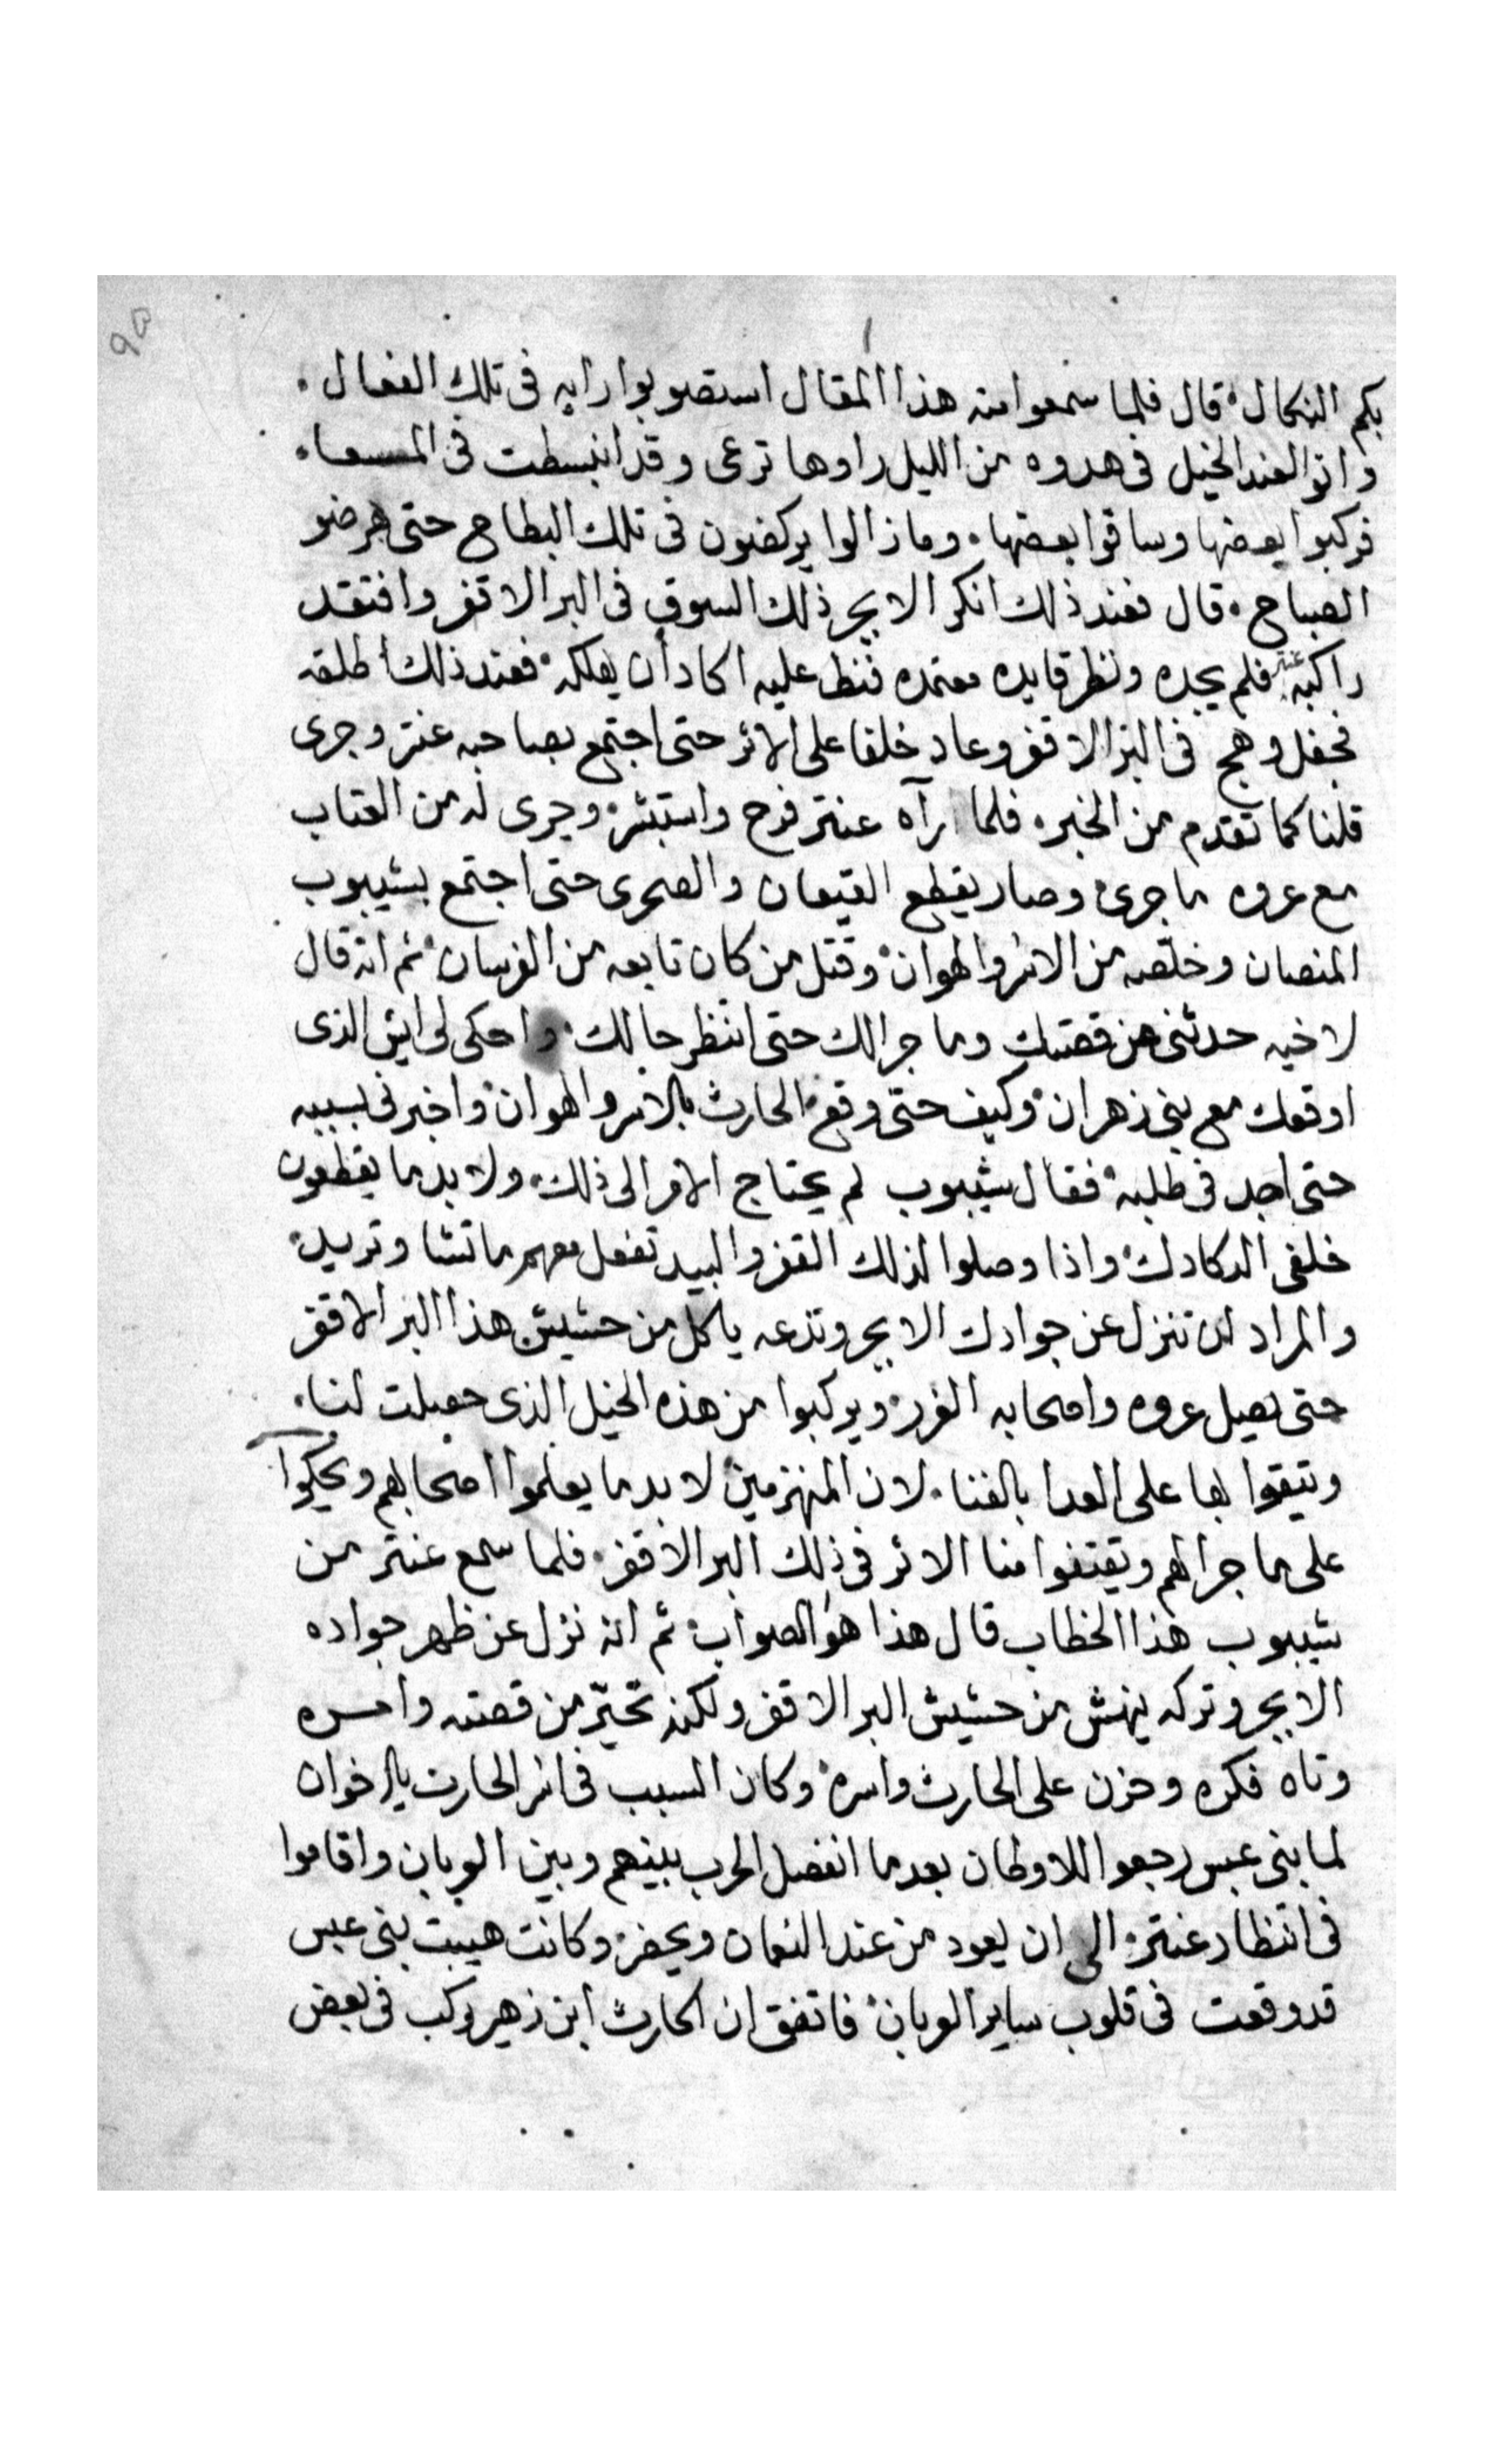 ٩٥
بكم النكال قال فلما سمعوا منه هذا المقال استصوبوا رايه فى تلك الفعال
واتوا لعند الخيل فى هدوه من الليل راوها ترعى وقد انبسطت فى المسعا
فركبوا بعضها وساقوا بعضها وما زالوا يركضون فى تلك البطاح حتى هر ضو
الصباح قال فعند ذلك انكر الابجر ذلك السوق فى البر الاقفر وافتقد
راكبه عنتر فلم يجده ونظر قايده معتمده فنط عليه اكاد أن يهلكه فعند ذلك أطلقه
فجفل وهج فى البر الاقفر وعاد خلفا على الاثر حتى اجتمع بصاحبه عنتر وجرى
قلنا كما تقدم من الخبر فلما رآه عنتر فرح واستبشر وجرى له من العتاب
مع عروه ما جرى وصار يقطع القيعان والصحرى حتى اجتمع بشيبوب
المنصان وخلصه من الاسر والهوان وقتل من كان تابعه من الفرسان ثم انه قال
لاخيه حدثنى عن قصتك وما جرالك حتى انتظر حالك واحكى لى ايش الذى
اوقعك مع بنى زهران وكيف حتى وقع الحارث بالاسر والهوان واخبرنى بسببه
حتى اجد فى طلبه فقال شيبوب لم يحتاج الامر الى ذلك ولا بد ما يقطعون
خلفى الدكادك واذا وصلوا لذلك القفر والبيد تفعل معهم ما تشا وتريد
والمراد ان تنزل عن جوادك الابجر وتدعه ياكل من حشيش هذا البر الاقفر
حتى يصيل عروه واصحابه الغرر ويركبوا من هذه الخيل الذى حصلت لنا
ويتيقوا بها على العدا بالفنا لان المنهزمين لا بد ما يعلموا اصحابهم ويحكوا
على ما جرالهم ويقتفوا منا الاثر فى ذلك البر الاقفر فلما سمع عنتر من
شيبوب هذا الخطاب قال هذا هو الصواب ثم انه نزل عن ظهر جواده
الابجر وتركه ينهش من حشيش البر الاقفر ولكنه تحيّر من قصته وامسره
وتاه فكره وحزن على الحارث واسره وكان السبب فى اسر الحارث يا اخوان
لما بنى عبس رجعوا للاوطان بعدما انفصل الحرب بينهم وبين العربان واقاموا
فى انتظار عنتر الى ان يعود من عند النعمان ويحضر وكانت هيبت بنى عبس
قد وقعت فى قلوب ساير العربان فاتفق ان الحارث ابن زهير ركب فى بعض